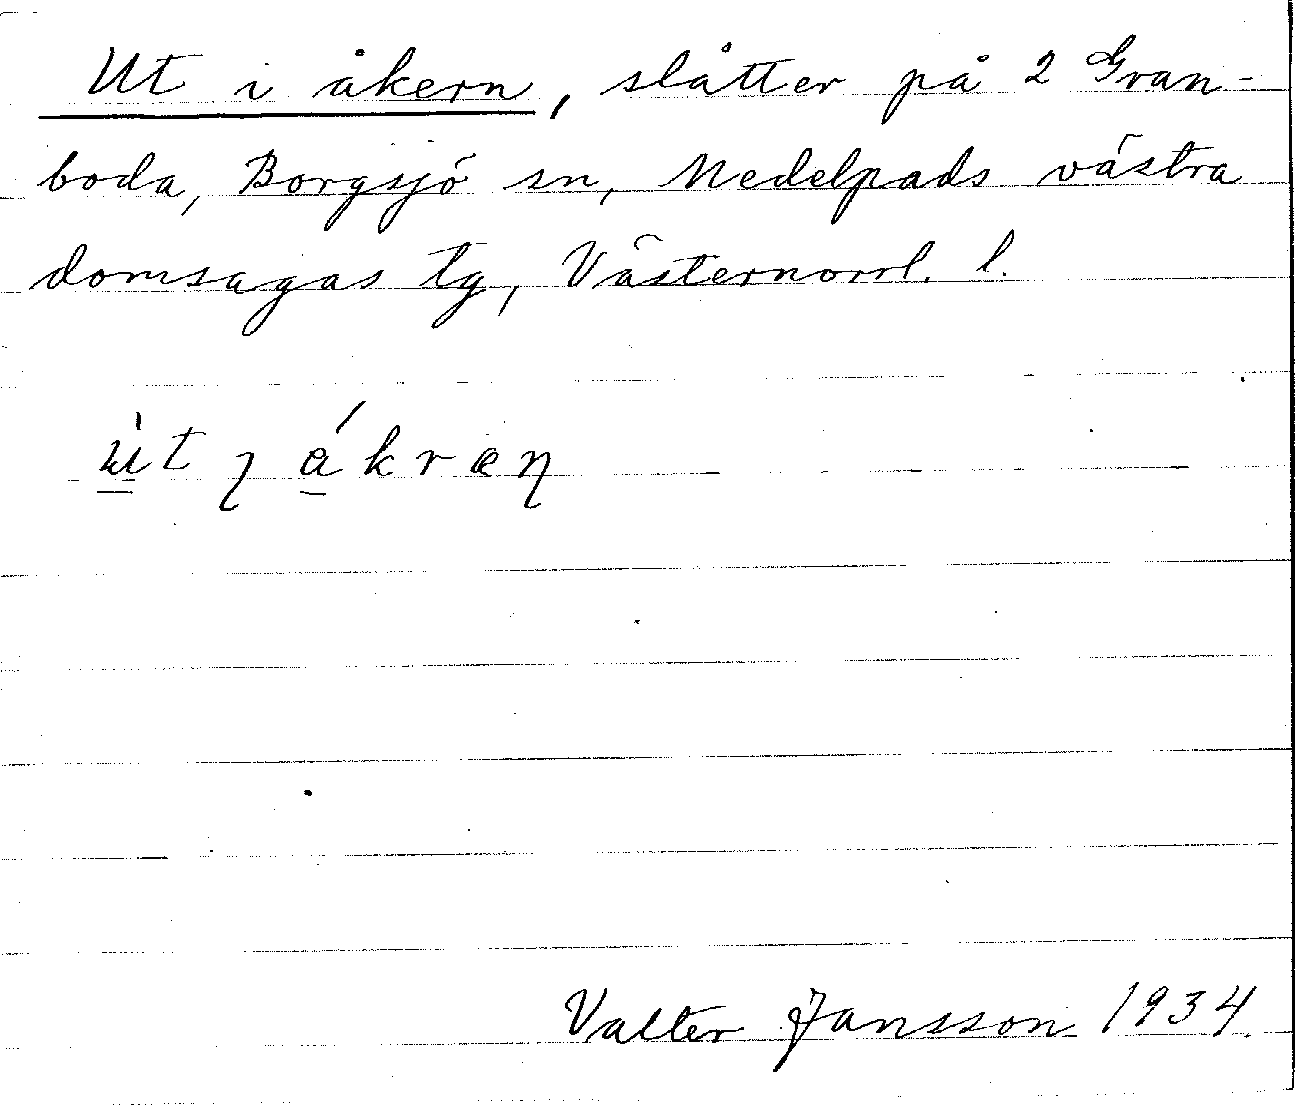 Ut i åkern, slåtter på 2 Gran-
boda, Borgsjö sn, Medelpads västra
domsagas tg, Västernorrl. l.
Valter Jansson 1934